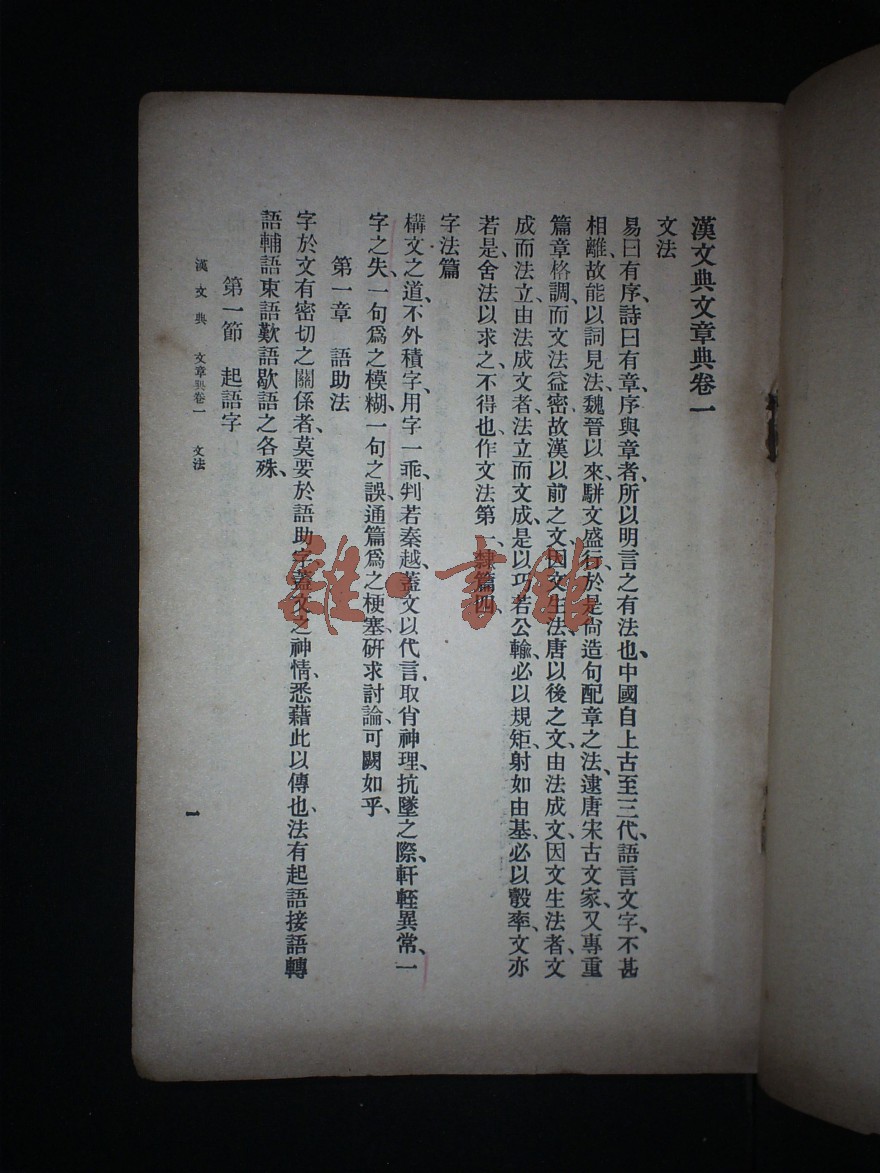 漢文典文章典卷一
文法
易曰有序、詩曰有章序與章者、所以明言之有法也、中國自上古至三代、語言文字、不甚
相離、故能以詞見法、魏晉以來、駢文盛行、於是尙造句配章之法、逮唐宋古文家、又專重
篇章格調、而文法益密、故漢以前之文、因文生法、唐以後之文、由法成文、因文生法者、文
成而法立、由法成文者、法立而文成、是以巧若公輸、必以規矩、射如由基、必以彀率、文亦
若是、舍法以求之、不得也、作文法第一、隸篇四、
字法篇
構文之道、不外積字、用字一乖、判若秦越、蓋文以代言、取肖神理、抗墜之際、軒輊異常、一
字之失、一句爲之模糊、一句之誤、通篇爲之梗塞、硏求討論、可闕如乎、
第一章 語助法
字於文有密切之關係者、莫要於語助字、蓋文之神情、悉藉此以傳也、法有起語接語轉
語輔語束語歎語歇語之各殊、
第一節 起語字
漢文典 文章典卷一 文法
一
雜·書館